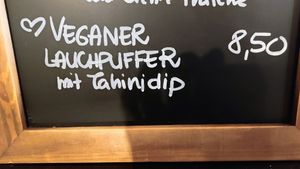 VEGANER 8,50
LAUCHPUFFER
mit Tahinidip